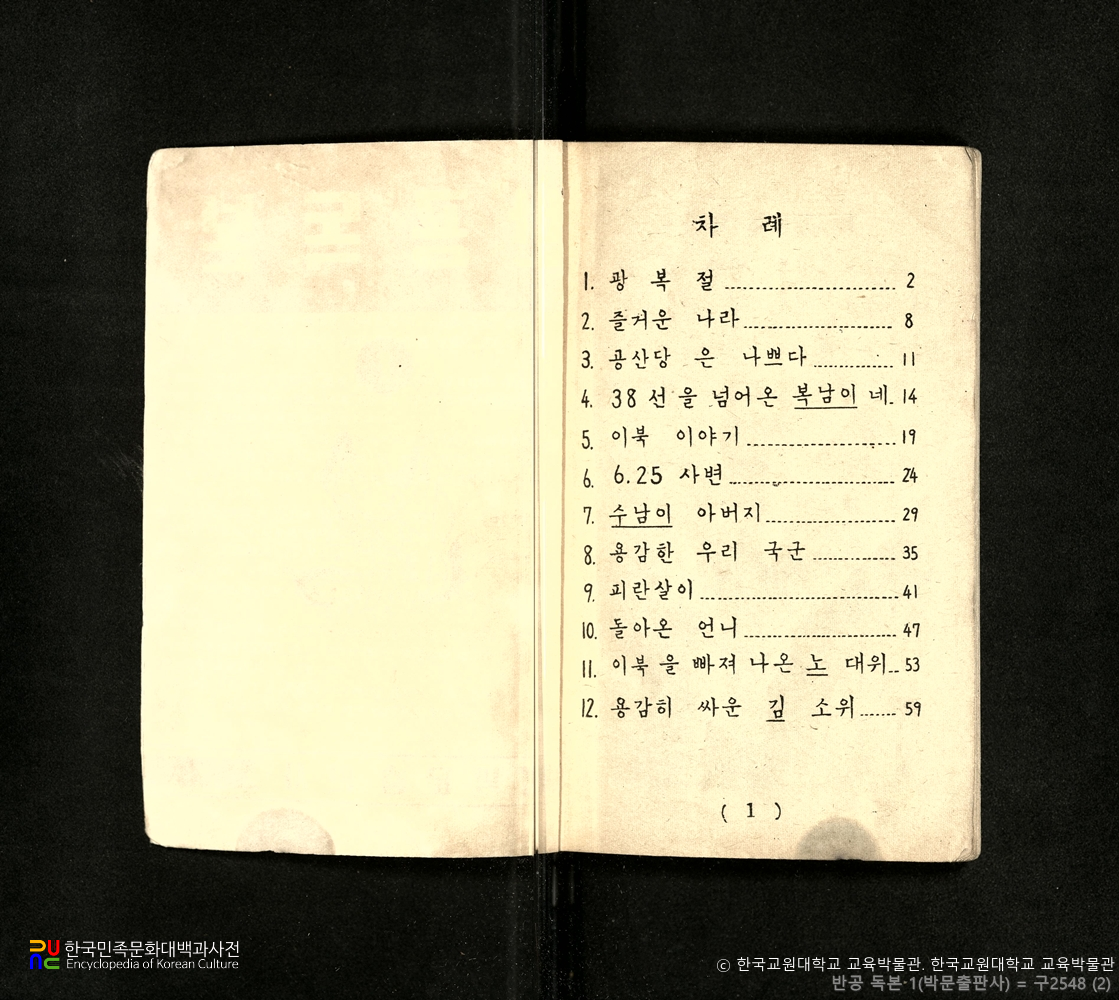 차 례
1. 광 복 절 2
2. 즐거운 나라 8
3. 공산당 은 나쁘다 11
4. 38 선 을 넘어온 복남이 네 14
5. 이북 이야기 19
6. 6.25 사변 24
7. 수남이 아버지 29
8. 용감한 우리 국군 35
9. 피란살이 41
10. 돌아온 언니 47
11. 이북 을 빠져 나온 노 대위 53
12. 용감히 싸운 김 소위 59
( 1 )
한국민족문화대백과사전
Encyclopedia of Korean Culture
© 한국교원대학교 교육박물관. 한국교원대학교 교육박물관
반공 독본·1(박문출판사) = 구2548 (2)